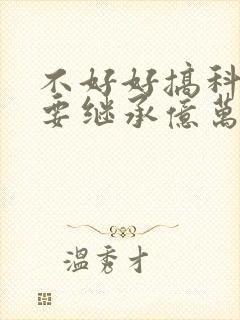 不好好搞科
要继承億萬
溫秀才